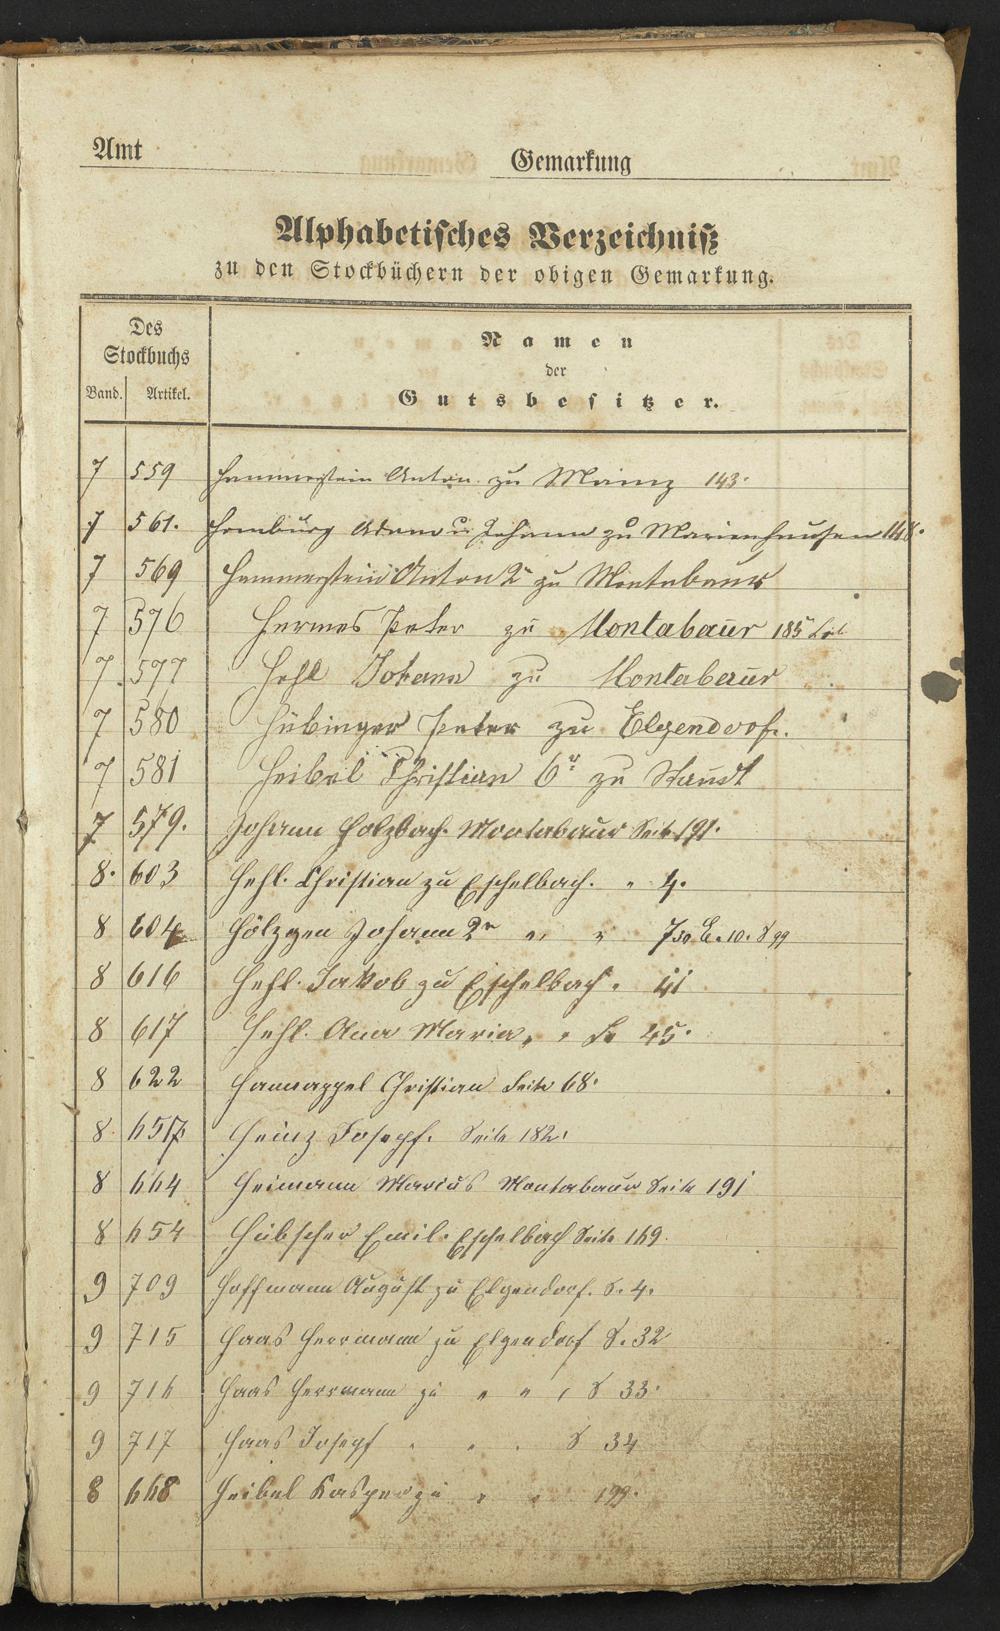 Amt
Gemarkung
Alphabetisches Verzeichniß
zu den Stockbüchern der obigen Gemarkung.
Des Stockbuchs
Band. Artikel.
Namen
der
Gutsbesitzer.
7 559 Hammerstein Anton zu Mainz 143.
7 561. Homburg Adam u. Johann zu Marienhausen 148.
7 569 Hammerstein Anton 2r zu Montabaur
7 576 Hermes Peter zu Montabaur 185
7 577 Hehl Johann zu Montabaur
7 580 Hübinger Peter zu Elgendorf.
7 581 Heibel Christian 6r zu Staudt
7 579. Johann Holzbach. Montabaur Seite 191.
8. 603 Hehl. Christian zu Eschelbach. " 4.
8 604 Hölzgen Johann 2r " "
8 616 Hehl. Jakob zu Eschelbach. " 41
8 617 Hehl. Anna Maria, " 45.
8 622 Hannappel Christian Seite 68.
8 657 Heinz Joseph. Seite 182.
8 664 Heimann Marcus Montabaur Seite 191
8 654 Hübscher Emil. Eschelbach Seite 169.
9 709 Hoffmann August zu Elgendorf. S. 4.
9 715 Haas Herrmann zu Elgendorf S. 32
9 716 Haas Herrmann zu " " , S 33.
9 717 Haas Joseph " " " S 34
8 668 Heibel Kasper zu " " 199.